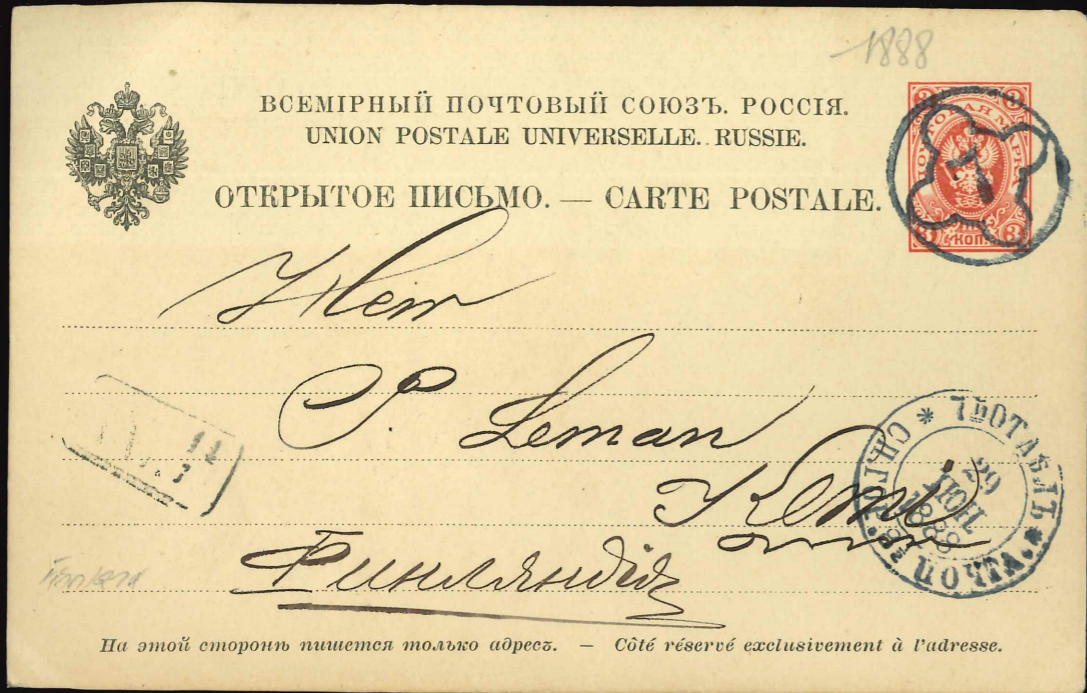 1888
ВСЕМІРНЫЙ ПОЧТОВЫЙ СОЮЗЪ. РОССІЯ.
UNION POSTALE UNIVERSELLE. RUSSIE.
ОТКРЫТОЕ ПИСЬМО. — CARTE POSTALE.
ПОЧТОВАЯ МАРКА
3 КОП. 3
7
Herr
P. Leman
Kemi
Финляндія
7 ОТДѢЛ
26
ІЮН
1888
На этой сторонѣ пишется только адресъ. — Côté réservé exclusivement à l'adresse.